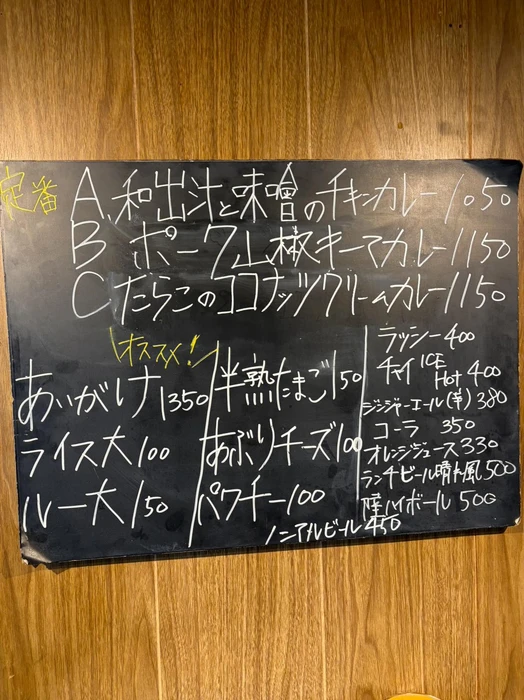 定番 A. 和出汁と味噌のチキンカレー 1050
B ポーク山椒キーマカレー 1150
C たらこのココナッツクリームカレー 1150
オススメ!
あいがけ 1350
ライス大 100
ルー大 150
半熟たまご 150
あぶりチーズ 100
パクチー 100
ノンアルビール 450
ラッシー 400
チャイ ICE Hot 400
ジンジャーエール(辛) 380
コーラ 350
オレンジジュース 330
ランチビール晴れ風 500
ハイボール 500